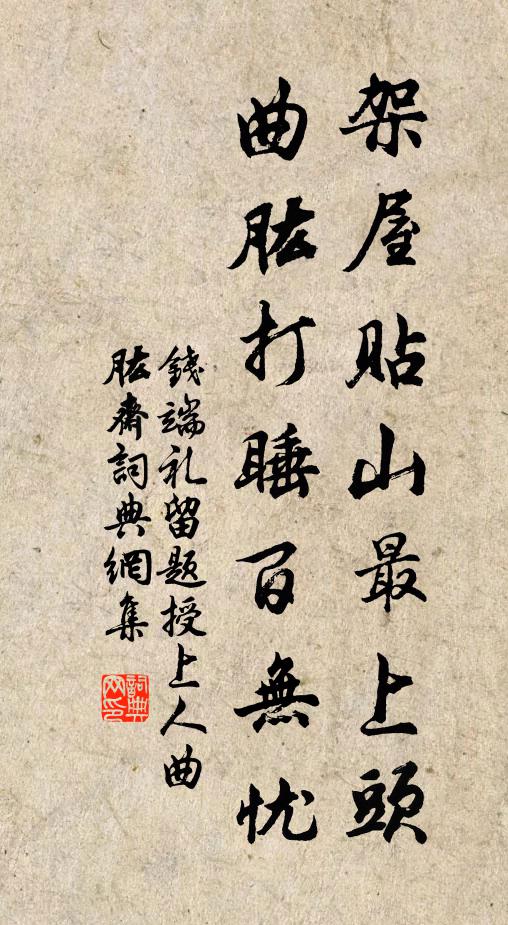 架屋貼山最上頭
曲肱打睡百無忧
錢端礼留題授上人曲
肱齋詞典網集
詞典网印